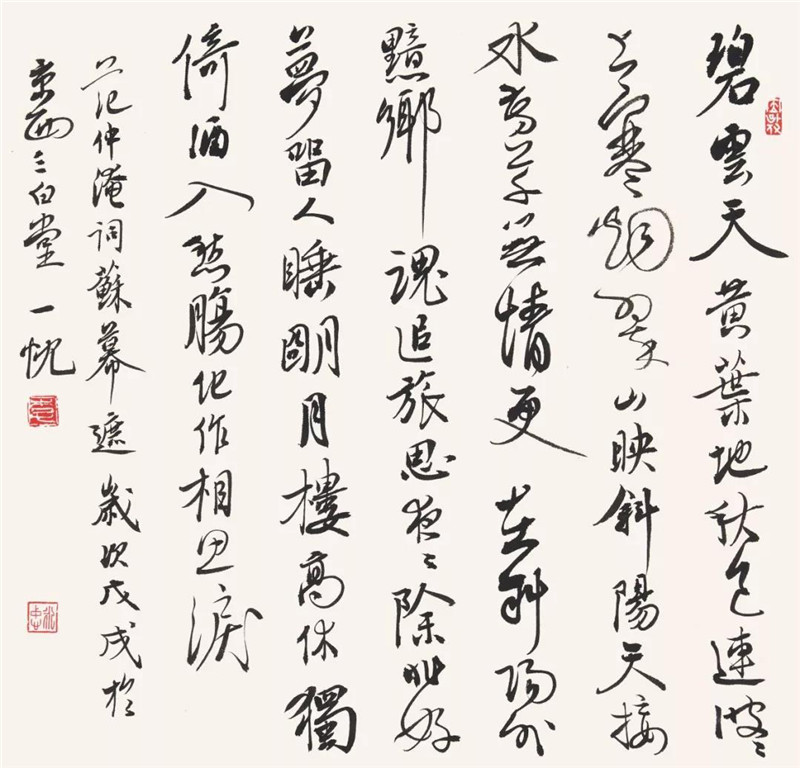 碧雲天黃葉地秋色連波〻
上寒烟翠山映斜陽天接
水芳草無情更在斜陽外
黯鄉魂追旅思夜〻除非好
夢留人睡明月樓高休獨
倚酒入愁腸化作相思淚
范仲淹詞蘇幕遮歲次戊戌於
京西三白堂一忱